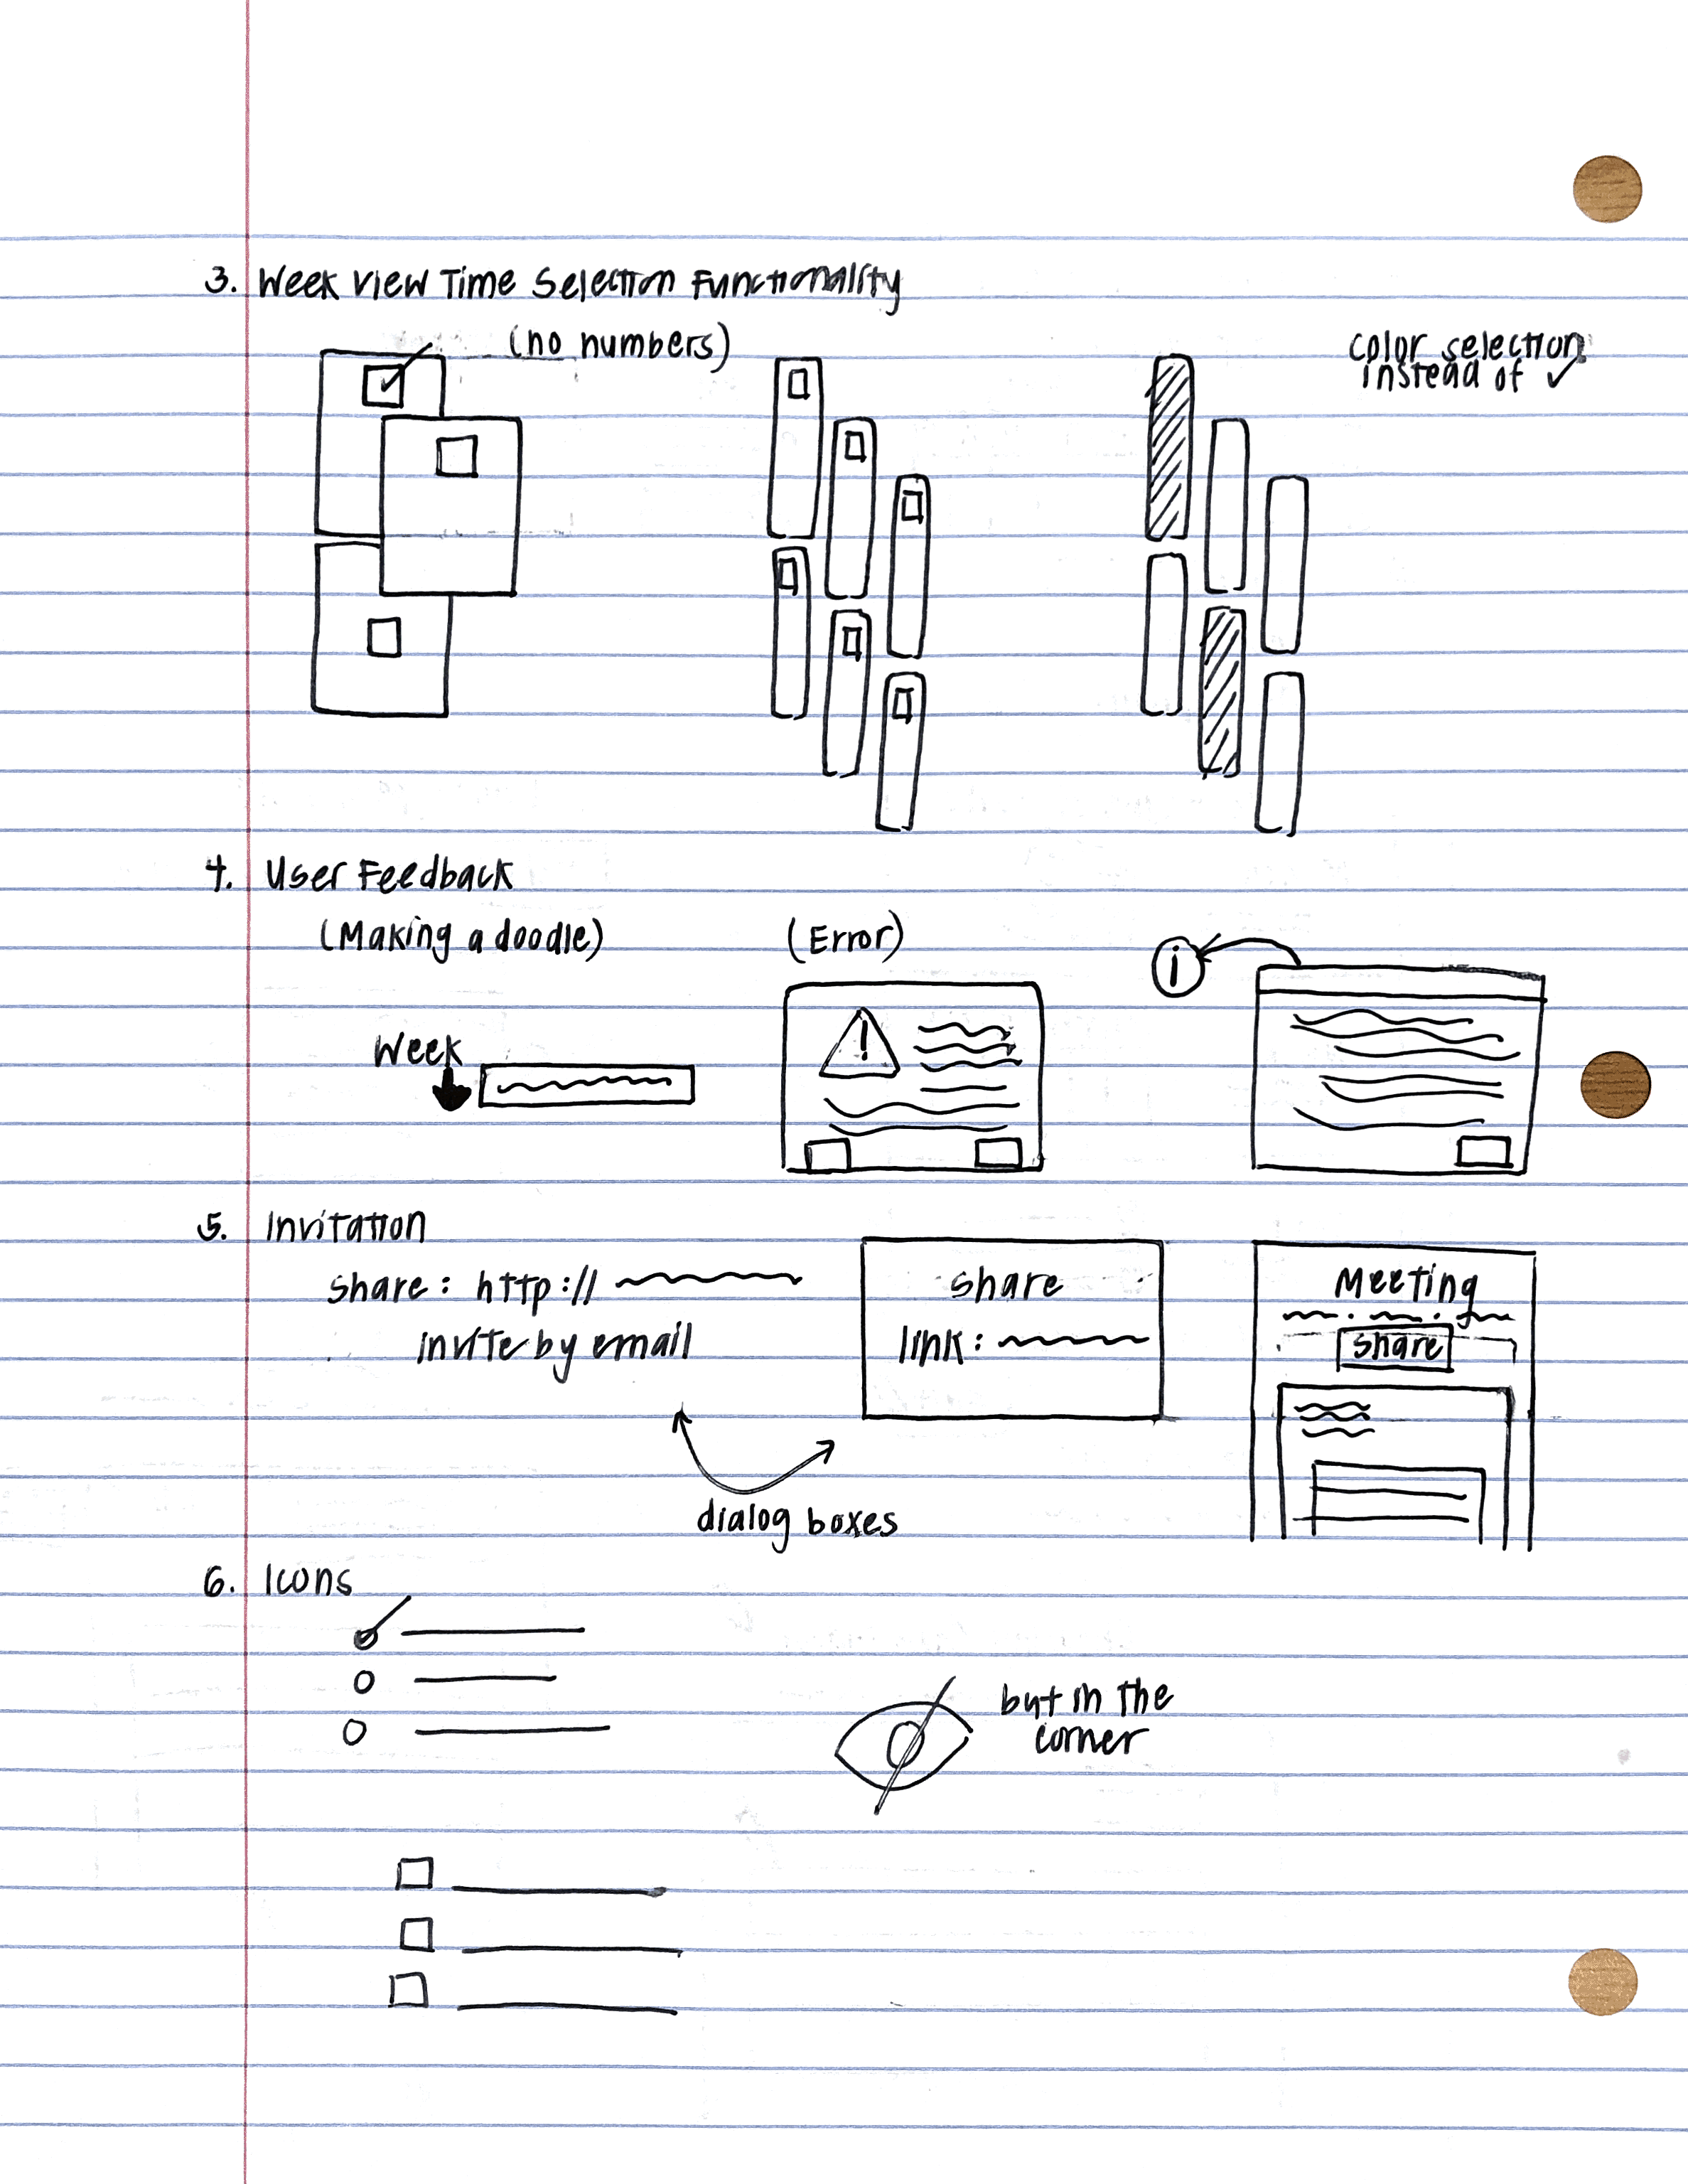 3. Week View Time Selection Functionality
(no numbers)
color selection
instead of ✓
4. User Feedback
(Making a doodle)
(Error)
Week
!
i
5. Invitation
share: http://
invite by email
share
link:
Meeting
share
dialog boxes
6. Icons
but in the
corner